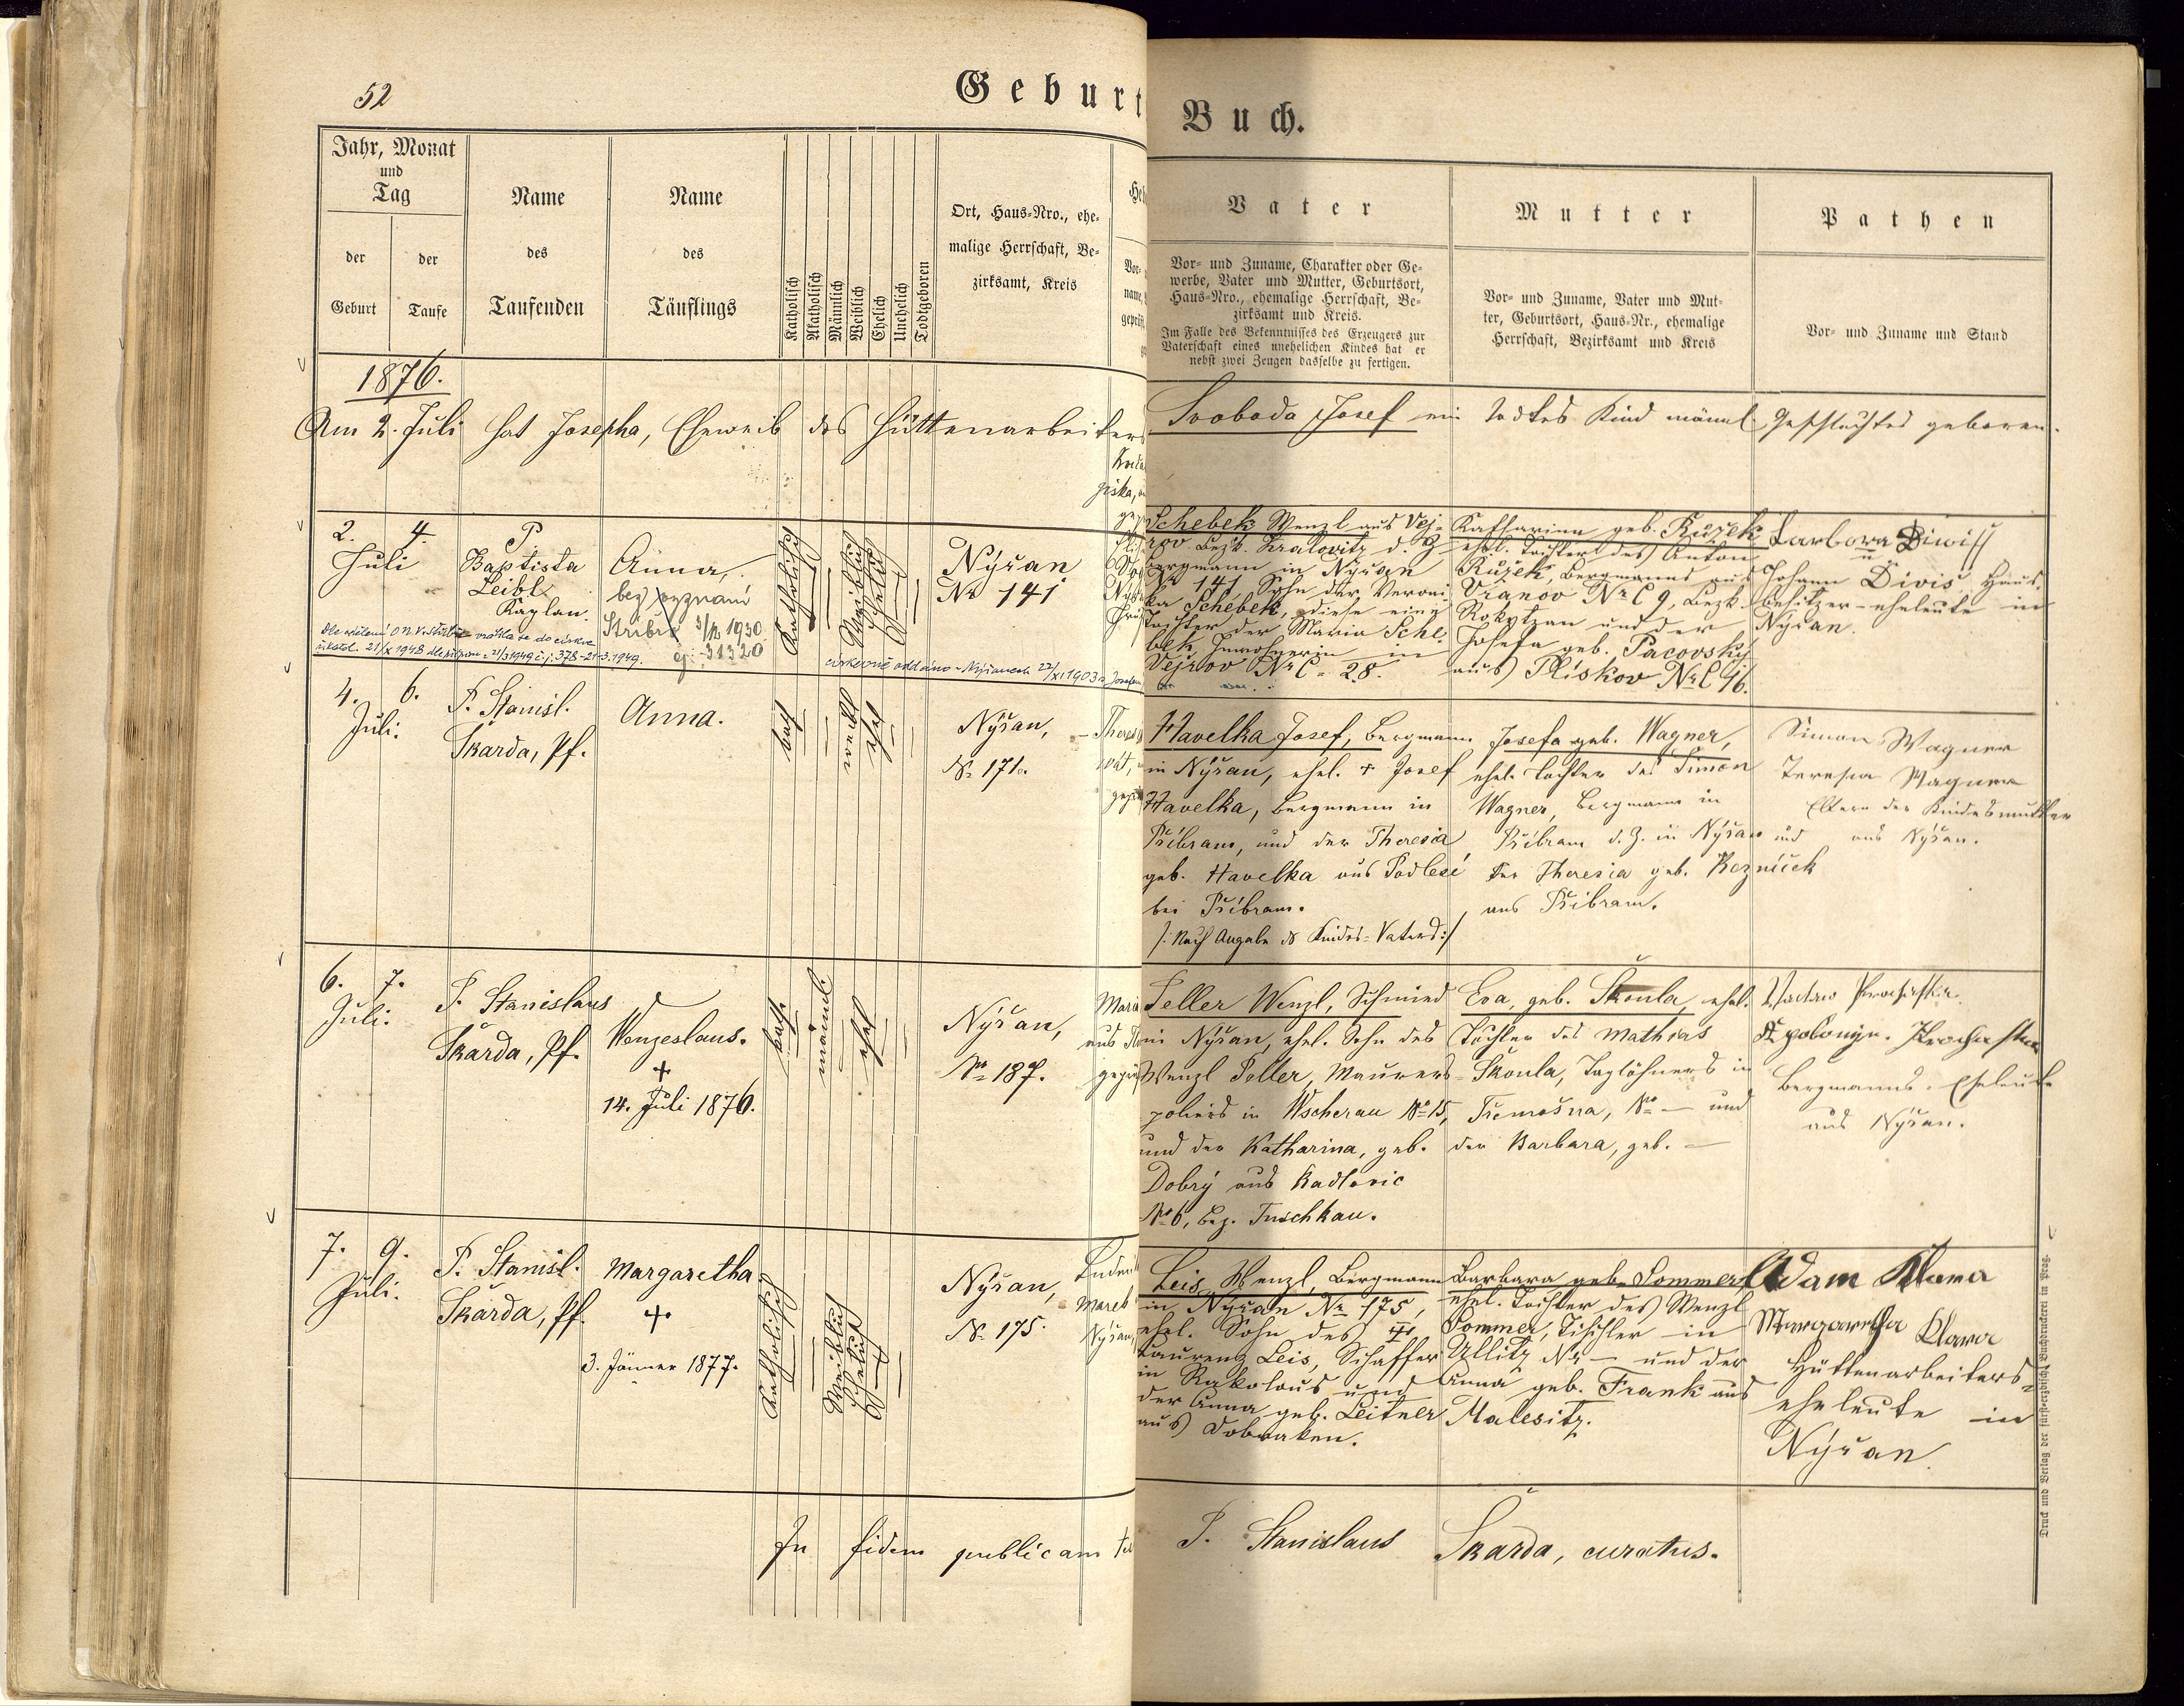 52
Geburt
Buch.
Jahr, Monat
und
Tag
der
Geburt
der
Taufe
Name
des
Taufenden
Name
des
Täuflings
Katholisch
Akatholisch
Männlich
Weiblich
Ehelich
Unehelich
Todtgeboren
Ort, Haus-Nro., ehe-
malige Herrschaft, Be-
zirksamt, Kreis
Vater
Vor- und Zuname, Charakter oder Ge-
werbe, Vater und Mutter, Geburtsort,
Haus-Nro., ehemalige Herrschaft, Be-
zirksamt und Kreis.
Im Falle des Bekenntnisses des Erzeugers zur
Vaterschaft eines unehelichen Kindes hat er
nebst zwei Zeugen dasselbe zu fertigen.
Mutter
Vor- und Zuname, Vater und Mut-
ter, Geburtsort, Haus-Nr., ehemalige
Herrschaft, Bezirksamt und Kreis
Pathen
Vor- und Zuname und Stand
1876.
Am 2. Juli hat Josepha, Eheweib des Hüttenarbeiters Svoboda Josef ein todtes Kind männl. Geschlechtes geboren.
2. 4.
Juli
P
Baptista
Leibl
Kaplan.
Anna,
bez vyznání
Stříbro 3/12 1930
čj. 31320
Katholisch
Weiblich
Ehelich
Nýřan
Nr 141
Schebek Wenzl aus Vej-
rov Bezk. Kralovitz d. Z
Bergmann in Nýřan
Nr 141, Sohn der Veroni-
ka Schebek, diese eine
Tochter der Maria Sche
bek, Inwohnerin in
Vejrov Nr C. 28.
Katharina geb. Růžek
ehel. Tochter des Anton
Růžek, Bergmanns aus
Vranov Nr C 9, Bezk.
Rokytzan und der
Josefa geb. Pacovský
aus Plískov Nr C 46.
Barbora Diwiss
u
Johann Diviš Haus
besitzer-eheleute in
Nýřan.
4. 6.
Juli.
P. Stanisl.
Škarda, Pf.
Anna.
kath
weibl
ehel
Nýřan,
No 171.
Havelka Josef, Bergmann
in Nýřan, ehel. + Josef
Havelka, Bergmann in
Příbram, und der Theresia
geb. Havelka aus Podlesí
bei Příbram.
/: Nach Angabe ds Kindes-Vaters :/
Josefa geb. Wagner,
ehel. Tochter des Simon
Wagner, Bergmann in
Příbram d. Z. in Nýřan und
der Theresia geb. Rezníček
aus Příbram.
Simon Wagner
Teresia Wagner
Eltern der Kindesmutter
aus Nýřan.
6. 7.
Juli.
P. Stanislaus
Škarda, Pf.
Wenzeslaus.
+
14. Juli 1876.
kath.
männl.
ehel
Nýřan,
No 187.
Peller Wenzl, Schmied
in Nýřan, ehel. Sohn des
Wenzl Peller, Maurer-
poliers in Wscherau No 15,
und der Katharina, geb.
Dobrý aus Radlovic
No 6, Bez. Tuschkau.
Eva, geb. Škoula, ehel.
Tochter des Mathias
Škoula, Taglöhners in
Třemošna, No — und
der Barbara, geb. —
Apolonija
Bergmanns-Eheleute
aus Nýřan.
7. 9.
Juli.
P. Stanisl.
Škarda, Pf.
Margaretha
+
3. Jänner 1877.
Katholisch
Weiblich
Ehelich
Nýřan,
No 175.
Leis, Wenzl, Bergmann
in Nýřan Nr 175,
ehel. Sohn des +
Laurenz Leis, Schaffer
in Rakolous und
der Anna geb. Leitner
aus Dobraken.
Barbara geb. Sommer
ehel. Tochter des Wenzl
Sommer, Tischler in
Ullitz Nr — und der
Anna geb. Frank aus
Malesitz.
Adam Klara
Margaretha Klara
Hüttenarbeiters-
eheleute in
Nýřan
In fidem publicam
P. Stanislaus Škarda, curatus.
Druck und Verlag der fürst-erzbisch. Buchdruckerei in Prag.